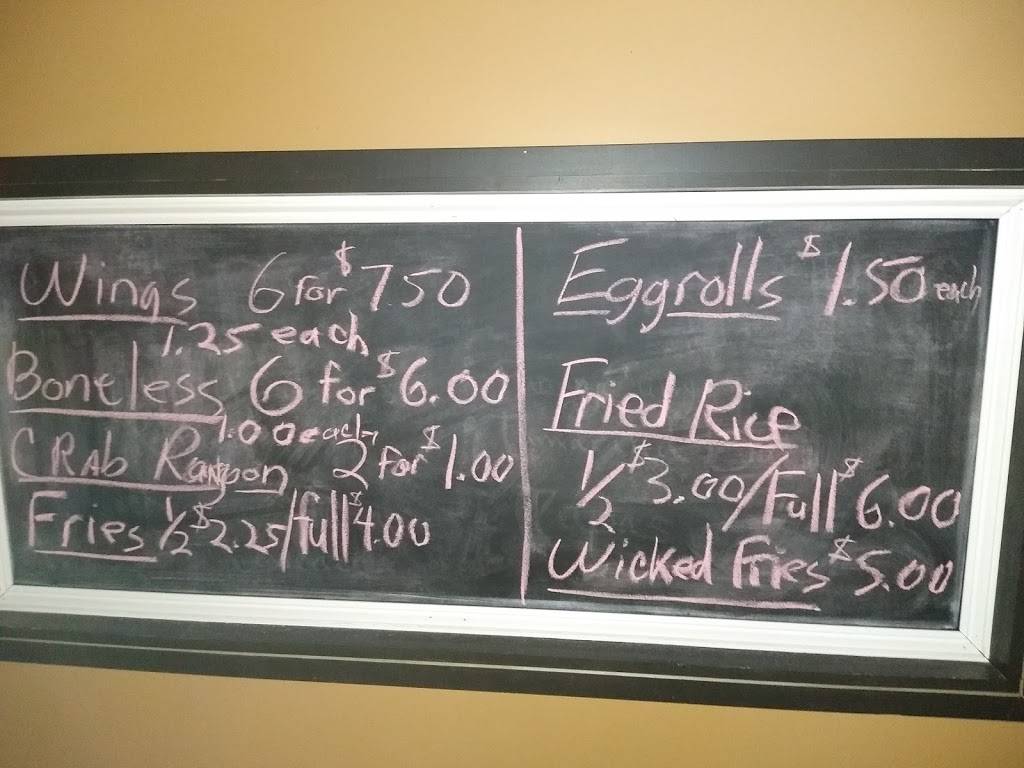 Wings 6 for $7.50
1.25 each
Boneless 6 for $6.00
1.00 each
CRAb Rangoon 2 for $1.00
Fries 1/2 $2.25/full $4.00
Eggrolls $1.50 each
Fried Rice
1/2 $3.00/Full $6.00
Wicked Fries $5.00